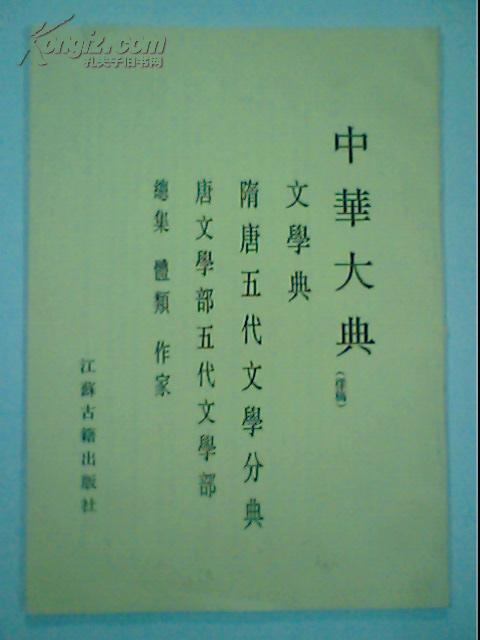 中華大典（樣稿）
文學典
隋唐五代文學分典
唐文學部五代文學部
總集 體類 作家
江蘇古籍出版社
Kongfz.com
孔夫子旧书网